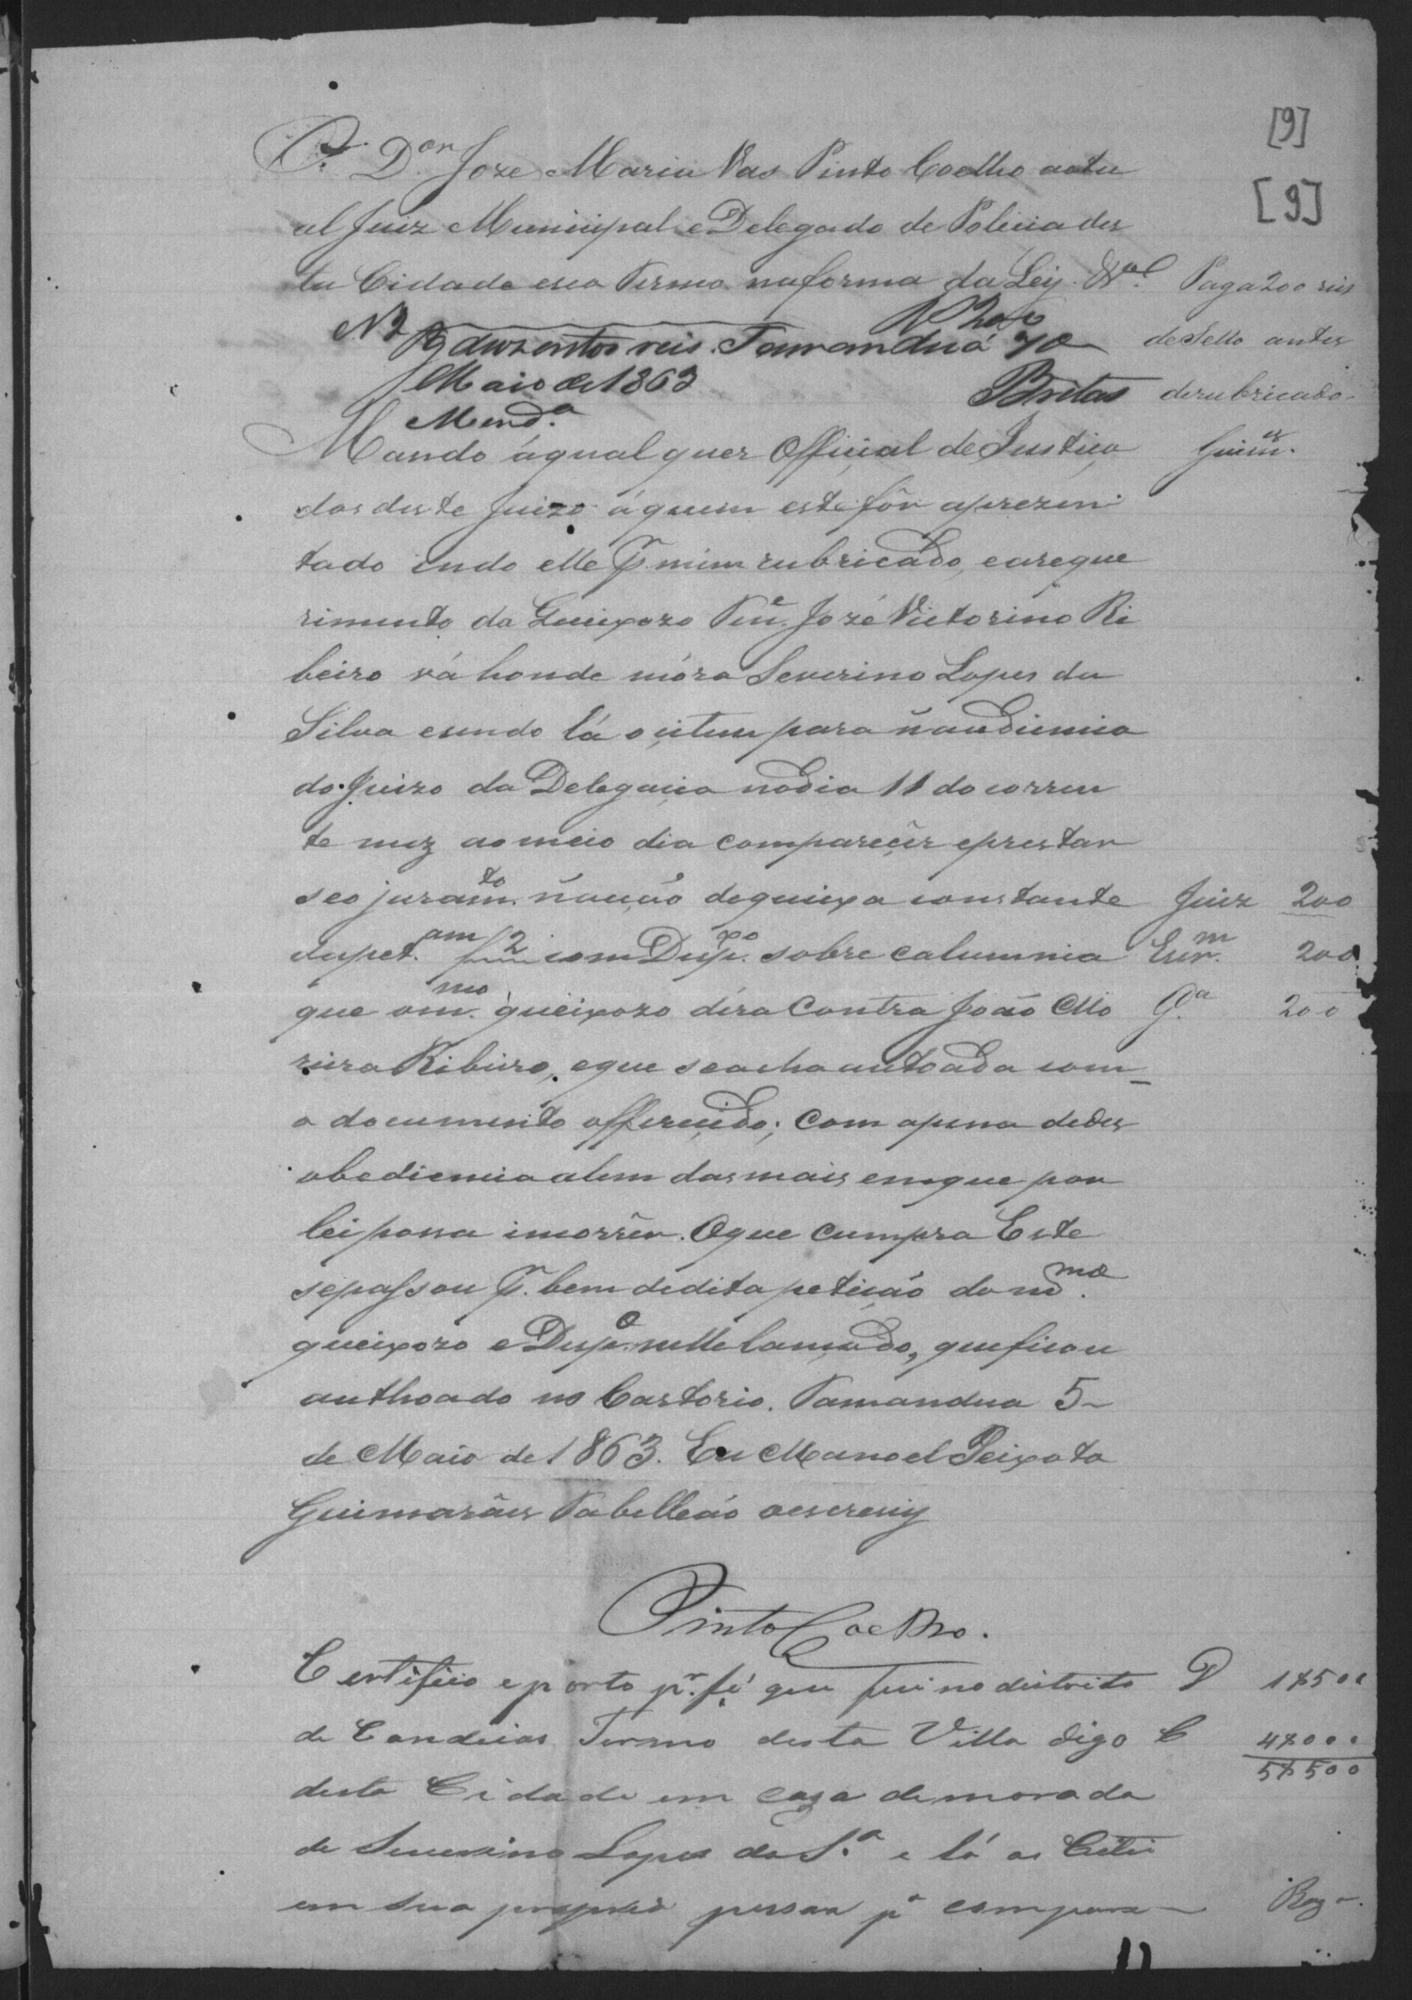 [9]
[9]
O D.or Joze Maria Vas Pinto Coelho actu
al Juiz Municipal e Delegado de Policia des
ta Cidade eseo Termo naforma da Ley &.a
Paga 200 reis
de Sello antes
derubricado.
Guim.es
N 2 200
Pg duzentos reis. Tamanduá 10
Maio de 1863
Mend.a Britas
Mando áqualquer Official de Justiça
dos deste Juizo áquem este fôr aprezen
tado indo elle pr. mim rubricado, eareque
rimento do Queixozo Ten.e Jozé Victorino Ri
beiro vá honde móra Severino Lopes da
Silva esendo lá o citem para naudiencia
do Juizo da Delegacia nodia 11 do corren
te mez ao meio dia comparecêr eprestar
seo juram.to naução dequeixa constante
dapet.am f 2 com Desp.xo sobre calumnia
que om.mo queixozo déra contra João Mo
reira Ribeiro, eque seacha autoada com
o documento offerecido; com apena dedes
obediencia alem das mais emque por
lei possa incorrêr. Oque cumpra Este
sepassou pr. bem dedita petição do m.mo
queixozo e Desp.o nella lançado, que ficou
authoado no Cartorio. Tamandua 5
de Maio de 1863. Eu Manoel Peixoto
Guimarães Tabelleão oescreviy
Juiz 200
Escr.m 200
G.a 200
Pinto Coelho.
Certifico eporto pr. fé que fui no distrito
de Candeias Termo desta Villa digo
desta Cidade em caza demorada
de Severino Lopes da S.a e lá os Citei
em sua propria pessoa p.a compare
D 1$500
C 4$000
5$500